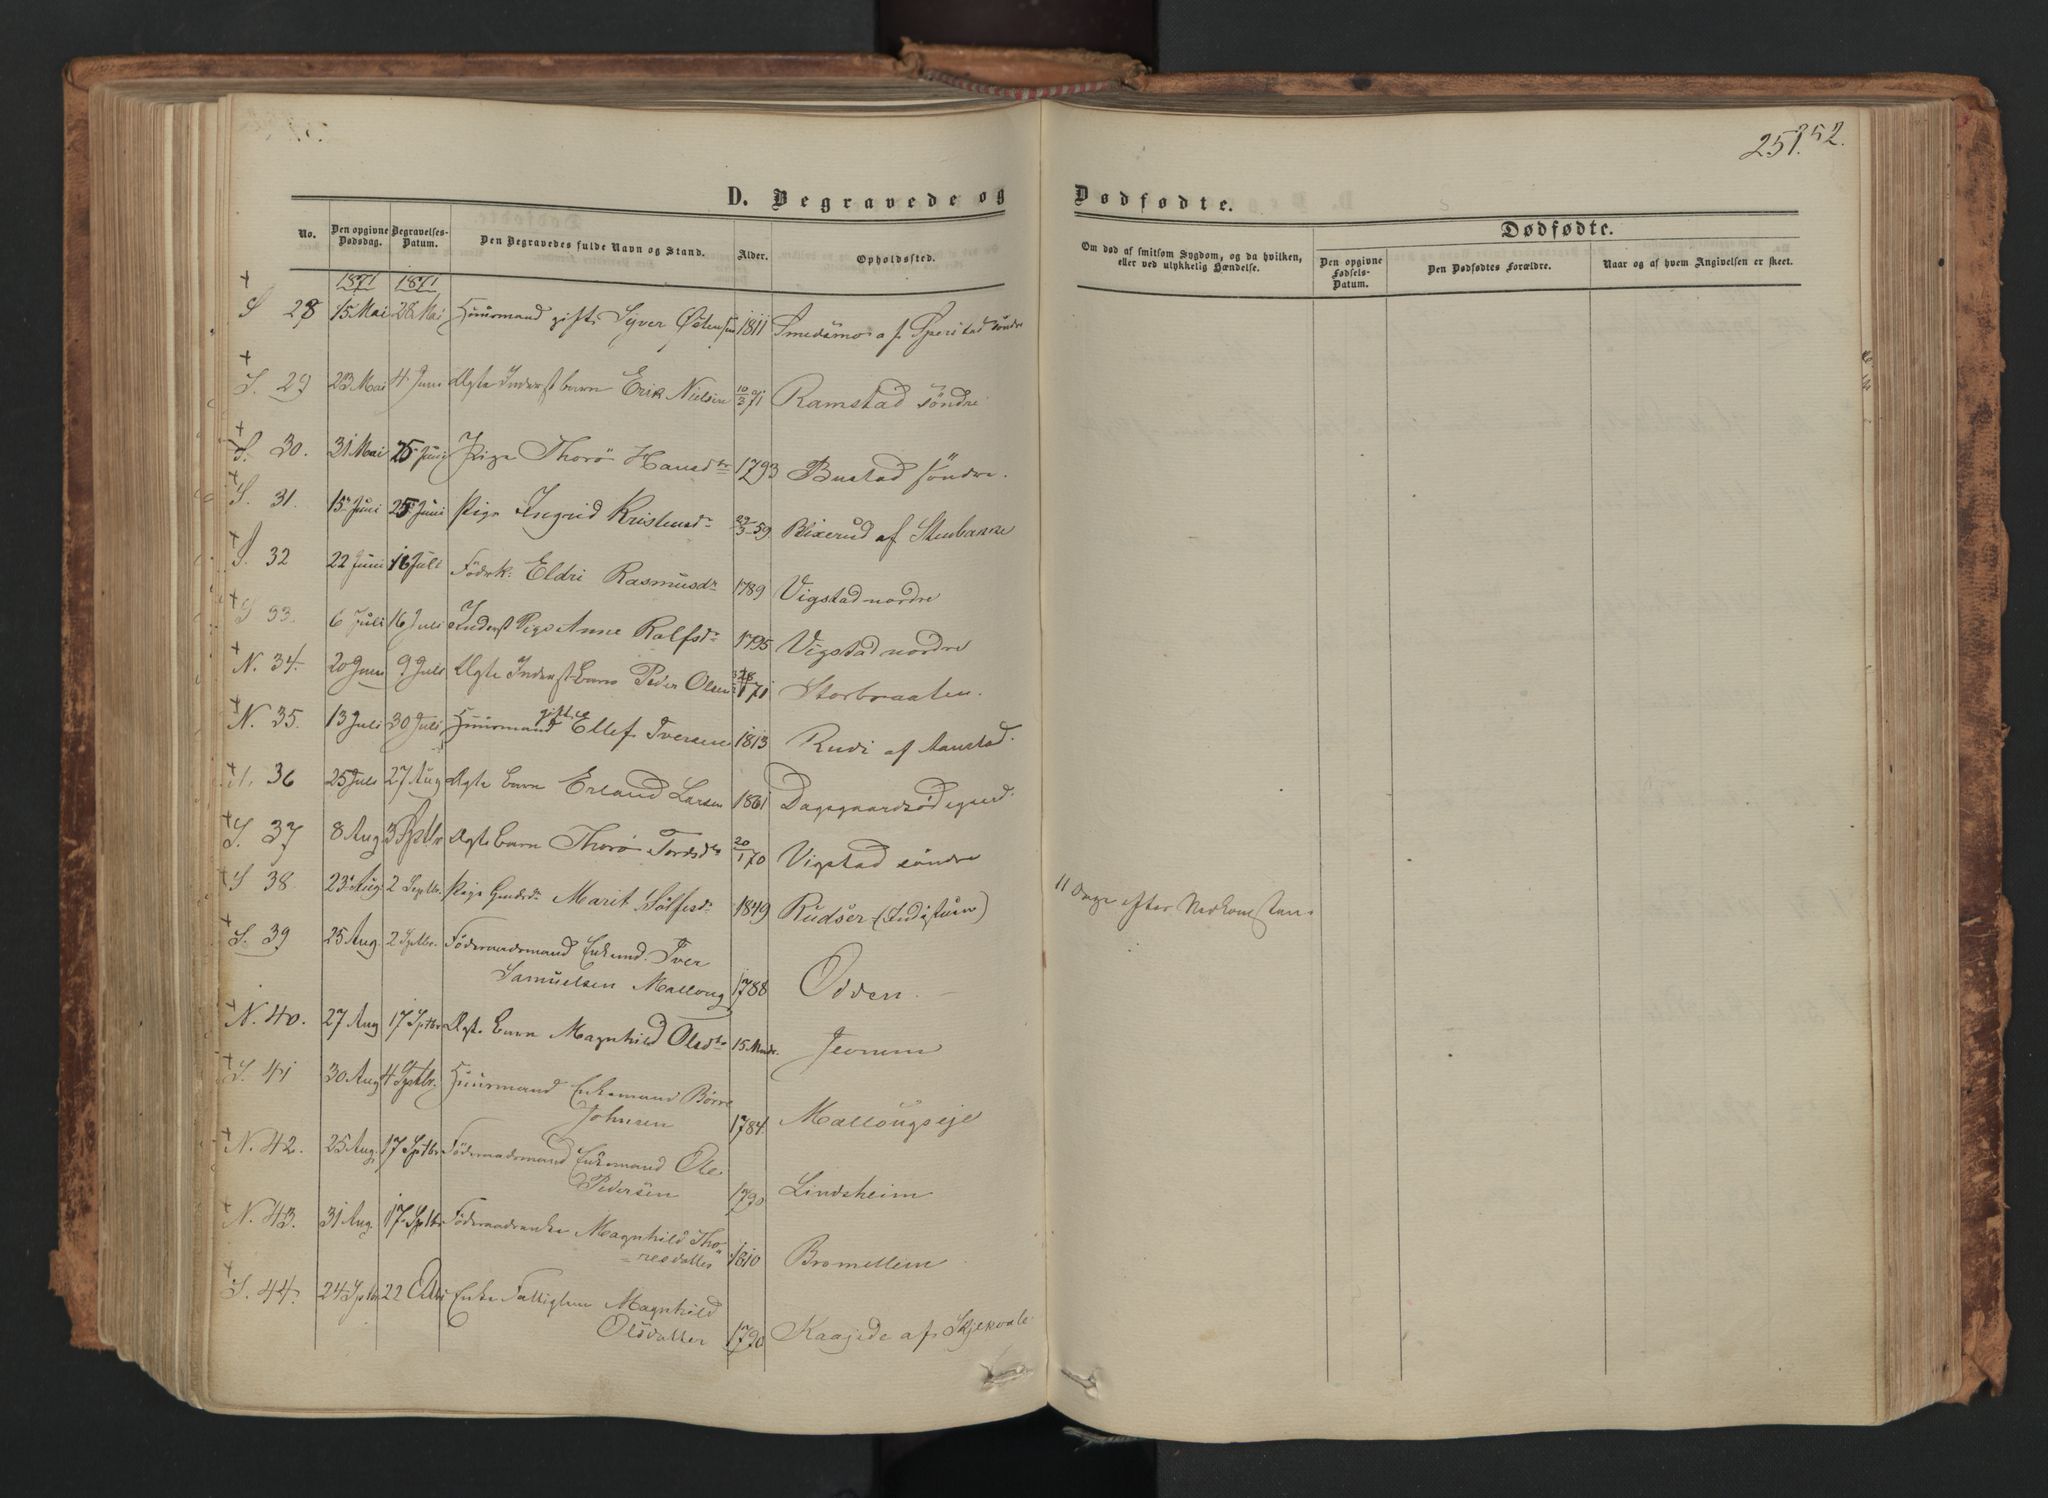 251. 252.
D. Begravede og Dødfødte.
No. Den opgivne Dødsdag. Begravelses-Datum. Den Begravedes fulde Navn og Stand. Alder. Opholdssted.
Om død af smitsom Sygdom, og da hvilken, eller ved ulykkelig Hændelse.
Dødfødte.
Den opgivne Fødsels-Datum. Den Dødfødtes Forældre. Naar og af hvem Angivelsen er skeet.
1871 1871
S 28 15 Mai 28 Mai Huusmand gift Syver Østensen 1811 Smedsmo af Sperstad söndre
S. 29 23 Mai 4 Juni Ægte Inderst barn Erik Nielsen 10/3 71 Ramstad söndre
S. 30. 31 Mai 25 Juni Pige Thorö Hansdtr 1793 Bustad söndre.
S. 31. 15 Juni 25 Juni Pige Ingrid Kristensdr 29/3 59 Blixerud af Stenbakke
S. 32 22 Juni 16 Juli Födrk. Eldri Rasmusdr 1789 Vigstad nordre
S 33. 6 Juli 16 Juli Inderst Pige Anne Rolfsdr 1795 Vigstad nordre
N. 34. 20 Juni 9 Juli Ægte Inderst Barn Peder Olsen 71 Storbraaten.
N. 35. 13 Juli 30 Juli Huusmand gift Ellef Iversen 1813 Rudi af Aanstad.
N. 36 25 Juli 27 Aug Ægte Barn Erland Larsen 1861 Dagsgaardsödegaard.
S. 37 8 Aug 3 Sptbr Ægte barn Thorö Tordsdtr 20/1 70 Vigstad söndre
S 38. 23 Aug. 2 Septbr. Pige Marit Sölfesdr 1849 Rudser
11 Dage efter Nedkomsten.
S. 39 25 Aug. 2 Sptbr. Föderaadsmand Enkemd. Iver
Samuelsen Mallong 1788 Odden.
N. 40. 27 Aug 17 Sptbr Ægte Barn Magnhild Olsdtr 15 Mndr. Jeorum
S. 41 30 Aug 4 Sptbr. Huusmand Enkemand Börre
Johnsen 1784. Mallöugseje
N. 42. 25 Aug. 17 Sptbr Föderaadsmand Enkemand Ole
Pedersen 1790 Lindsheim
N. 43. 31 Aug. 17 Sptbr Föderaadsenke Magnhild Tho-
resdatter 1810 Bromillem
S. 44. 24 Sptbr 22 Enke Fattiglem Magnhild
Olsdatter 1790 Kaajede af Skjekvale.